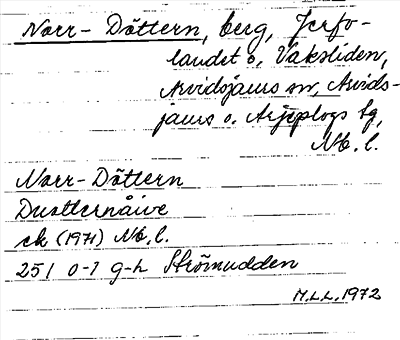 Norr-Döttern, berg, Jerfo-
landet o. Vaksliden,
Arvidsjaurs sn, Arvids-
jaurs o. Arjeplogs tg,
Nb. l.
Norr-Döttern
Duolternåive
ek (1971) Nb. l.
25 I 0-1 g-h Strömudden
M.L.L. 1972